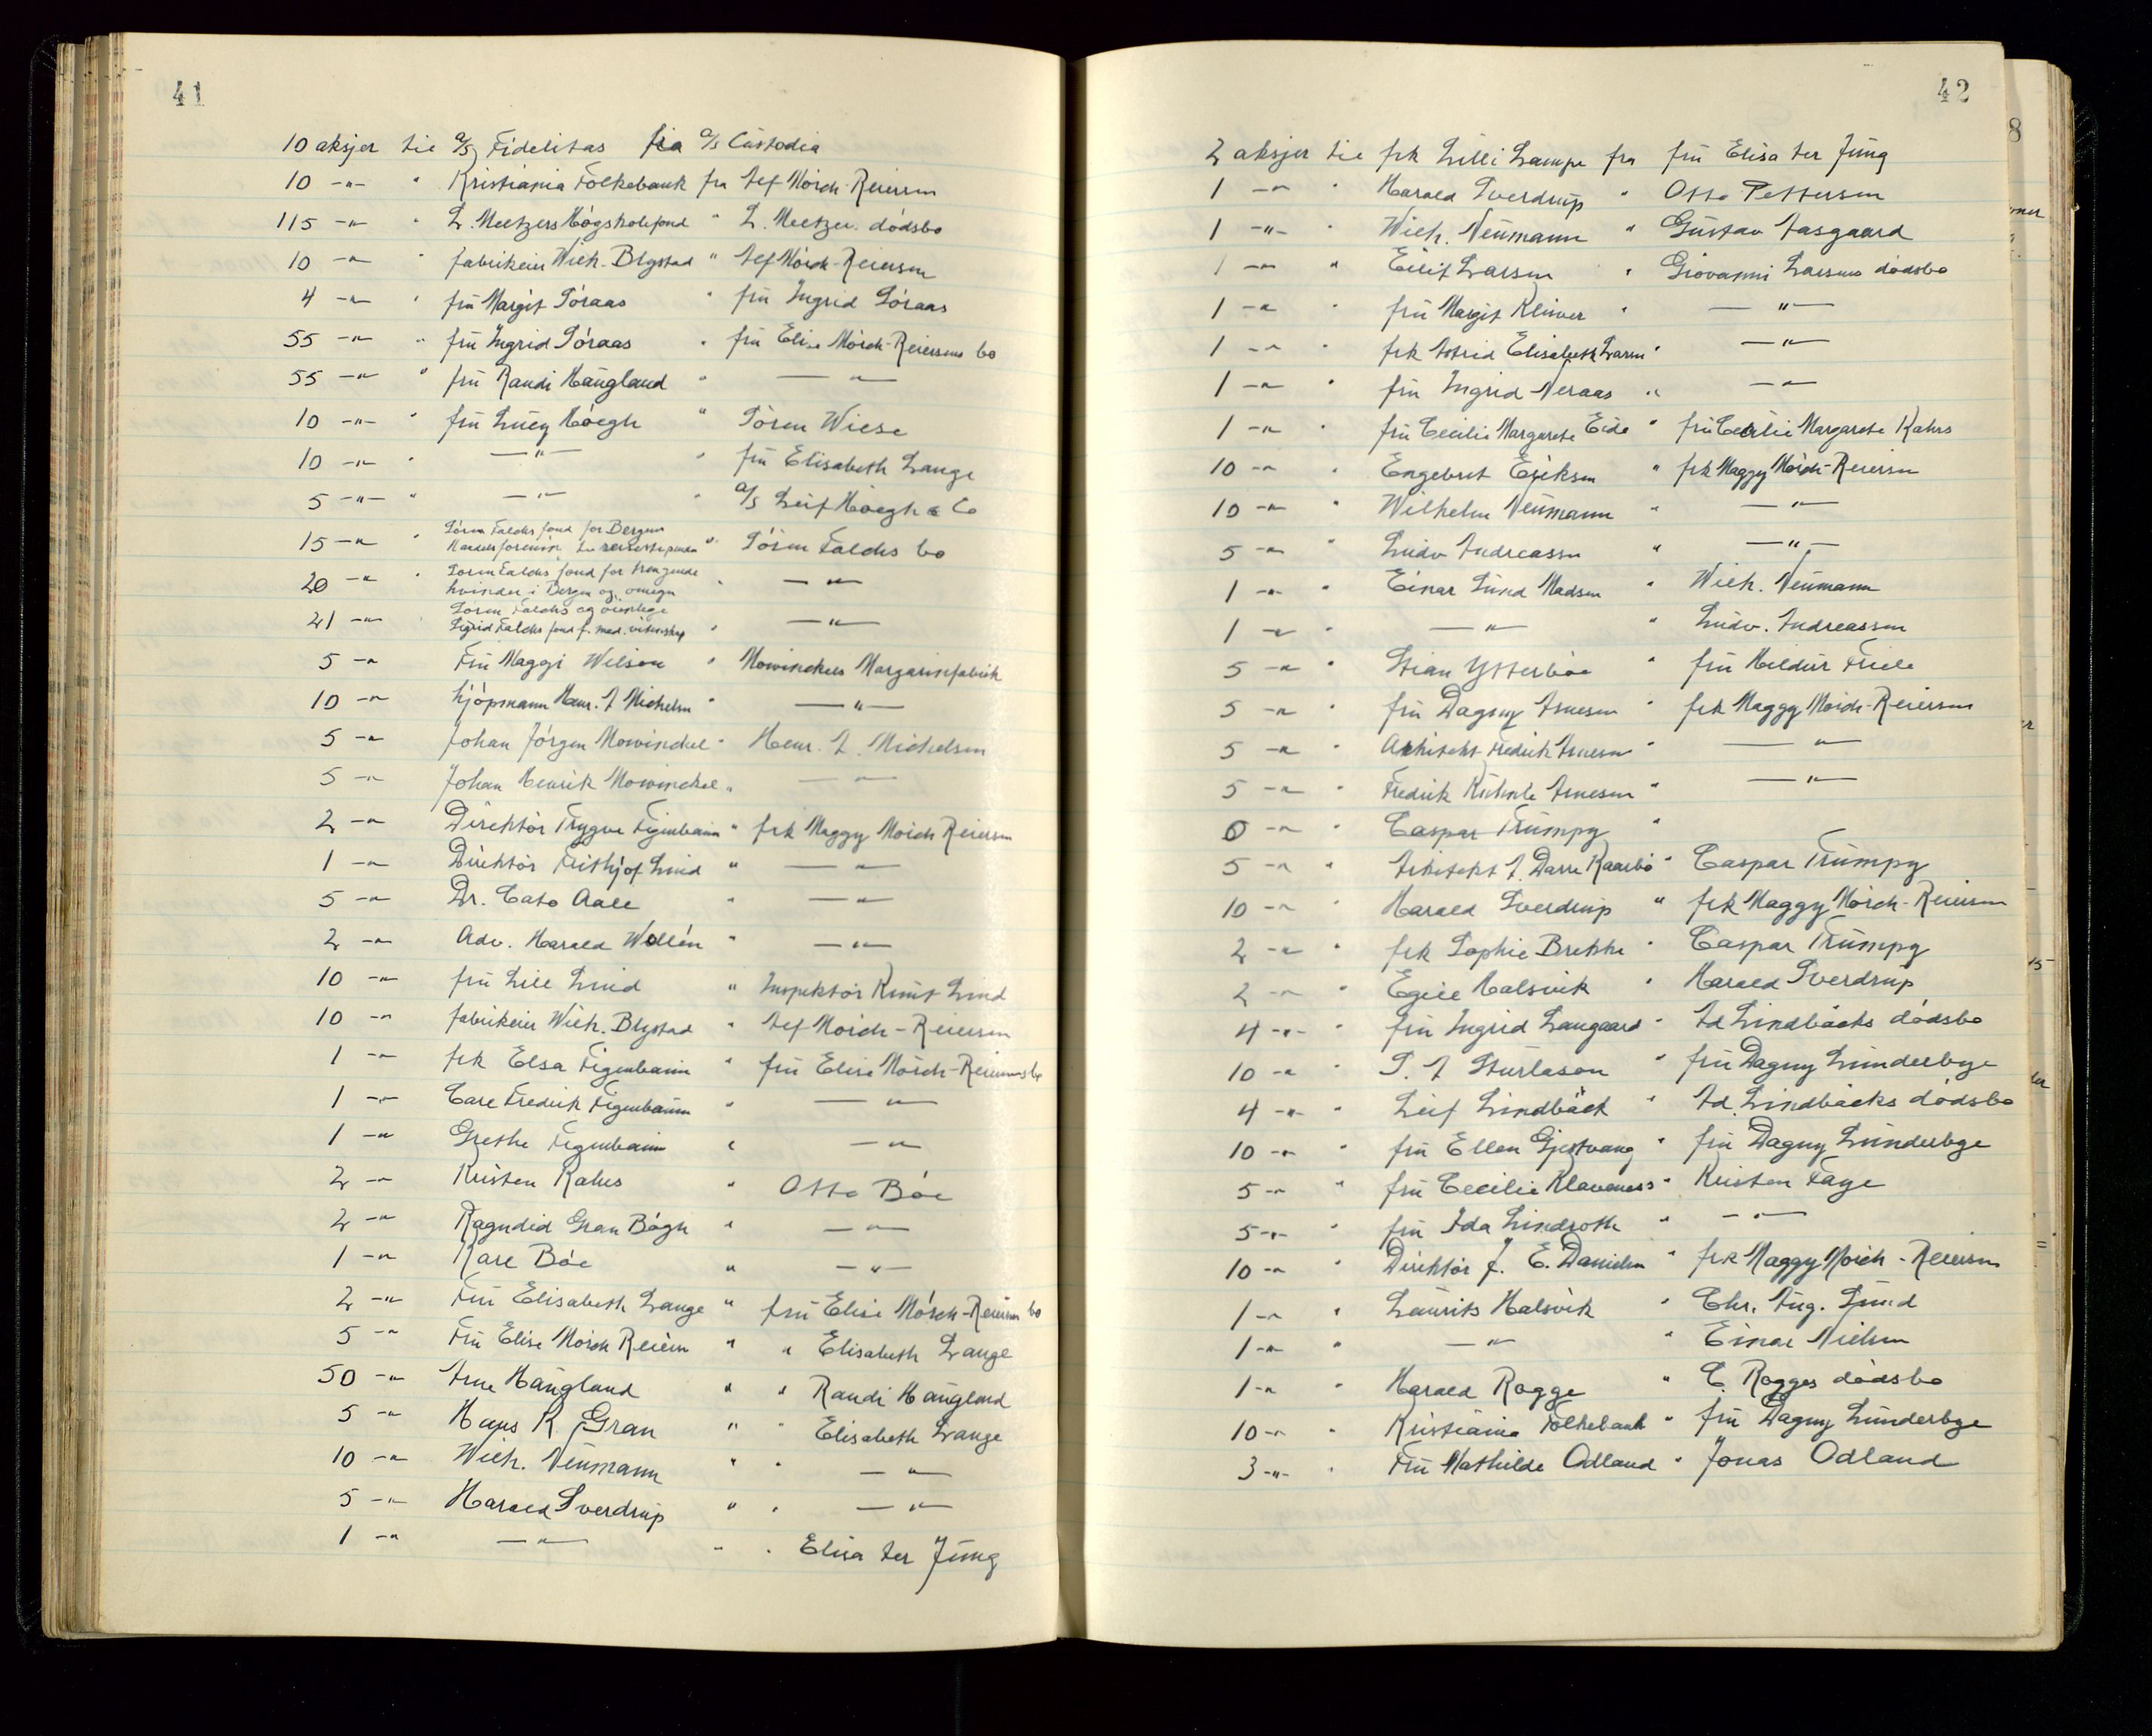 41
10 aksjer til a/s Fidelitas fra a/s Custodia
10 -"- " Kristiania Folkebank fra Alf Mörch-Reiersen
115 -"- " L. Meltzers Högskolefond " L. Meltzers dödsbo
10 -"- " fabrikeier Wilh. Blystad " Alf Mörch-Reiersen
4 -"- " frū Margit Söraas " frū Ingrid Söraas
55 -"- " frū Ingrid Söraas " frū Elise Mörch-Reiersens bo
55 -"- " frū Randi Haugland " -"-
10 -"- " frū Lucy Höegh " Sören Wiese
10 -"- " -"- " frū Elisabeth Lange
5 -"- " -"- " a/s Leif Höegh & Co
15 -"- " Sören Falchs fond for Bergens
Handelsforening " Sören Falchs bo
20 -"- " Sören Falchs fond for trængende
kvinder i Bergen og omegn " -"-
21 -"- " Sören Falchs og
Sigrid Falchs fond f. med. vitenskap " -"-
5 -"- Frū Maggi Wilson " Mowinckels Margarinfabrik
10 -"- kjöpmann Henr. A Michelsen " -"-
5 -"- Johan Jörgen Mowinckel " Henr. A. Michelsen
5 -"- Johan Henrik Mowinckel " -"-
2 -"- Direktör Trygve Figenbaum " frk Maggy Mörch Reiersen
1 -"- Direktör Frithjof Lund " -"-
5 -"- Dr. Cato Aall " -"-
2 -"- Adv. Harald Wollén " -"-
10 -"- frū Lill Lind " Inspektör Knut Lind
10 -"- fabrikeier Wilh. Blystad " Alf Mörch-Reiersen
1 -"- frk Elsa Figenbaum " frū Elise Mörch-Reiersens bo
1 -"- Carl Fredrik Figenbaum " -"-
1 -"- Grethe Figenbaum " -"-
2 -"- Kristen Kahrs " Otto Böe
2 -"- Ragndid Gran Bögh " -"-
1 -"- Kare Böe " -"-
2 -"- Frū Elisabeth Lange " frū Elise Mörch-Reiersen bo
5 -"- Frū Elise Mörch Reiersen " " Elisabeth Lange
50 -"- Arne Haugland " " Randi Haugland
5 -"- Hans K Gran " " Elisabeth Lange
10 -"- Wilh. Neumann " " -"-
5 -"- Harald Sverdrup " " -"-
1 -"- -"- " " Elisa ter Jung
42
2 aksjer til frk Lilli Lampe fra frū Elisa ter Jung
1 -"- " Harald Sverdrup " Otto Pettersen
1 -"- " Wilh. Neumann " Gustav Aasgaard
1 -"- " Eilif Larsen " Giovanni Larsens dödsbo
1 -"- " frū Margit Klüwer " -"-
1 -"- " frk Astrid Elisabeth Larsen " -"-
1 -"- " frū Ingrid Neraas " -"-
1 -"- " frū Cecilie Margarete Eide " frū Cecilie Margarete Kahrs
10 -"- " Engebret Eriksen " frk Maggy Mörch-Reiersen
10 -"- " Wilhelm Neumann " -"-
5 -"- " Ludv Andreassen " -"-
1 -"- " Einar Lund Madsen " Wilh. Neumann
1 -"- " -"- " Ludv. Andreassen
5 -"- " Stian Ytterböe " frū Hildur Friele
5 -"- " frū Dagny Arnesen " frk Maggy Mörch-Reiersen
5 -"- " Arkitekt Fredrik Arnesen " -"-
5 -"- " Fredrik Kuhnle Arnesen " -"-
0 -"- " Caspar Trumpy "
5 -"- " Arkitekt A. Darre Kaarbö " Caspar Trumpy
10 -"- " Harald Sverdrup " frk Maggy Mörch-Reiersen
2 -"- " frk Sophie Brekke " Caspar Trumpy
2 -"- " Egill Halsvik " Harald Sverdrup
4 -"- " frū Ingrid Langaard " Ad Lindbäcks dödsbo
10 -"- " S. A Sturlason " frū Dagny Lunderbye
4 -"- " Leif Lindbäck " Ad. Lindbäcks dödsbo
10 -"- " frū Ellen Gjestvang " frū Dagny Lunderbye
5 -"- " frū Cecilie Klaveness " Kristen Faye
5 -"- " frū Ida Lindroth " -"-
10 -"- " Direktör J. E. Danielsen " frk Maggy Mörch-Reiersen
1 -"- " Laurits Halsvik " Chr. Aug. Lund
1 -"- " -"- " Einar Nielsen
1 -"- " Harald Rogge " C. Rogges dödsbo
10 -"- " Kristiania Folkebank " frū Dagny Lunderbye
3 -"- " Frū Mathilde Odland " Jonas Odland